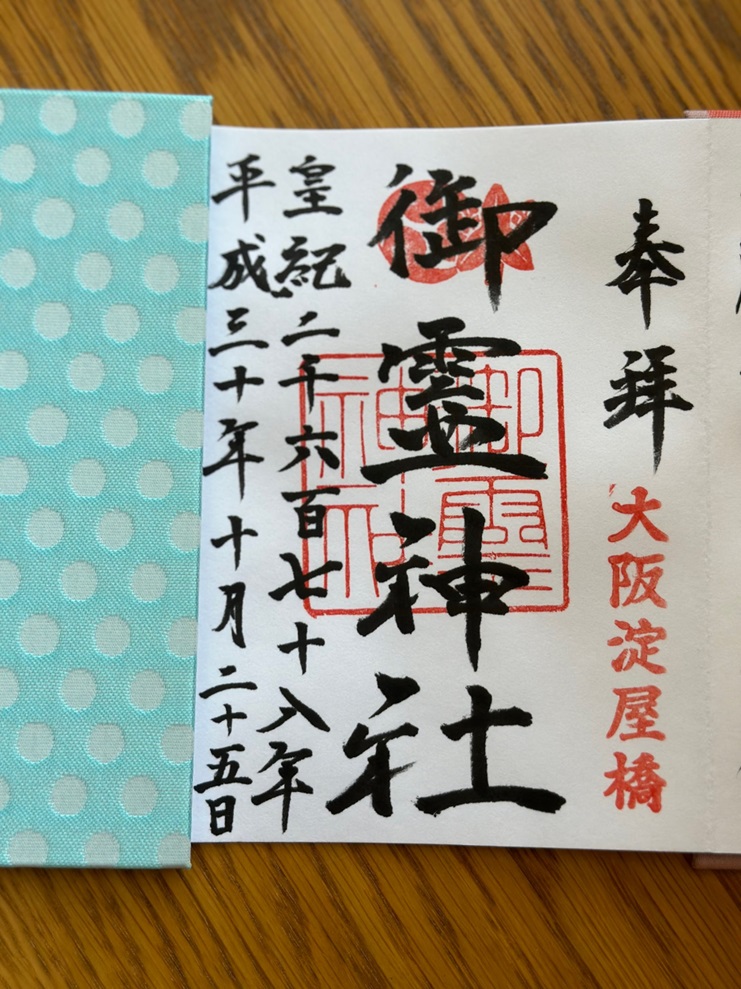 奉拝
大阪淀屋橋
御霊神社
御霊神社
皇紀二千六百七十八年
平成三十年十月二十五日